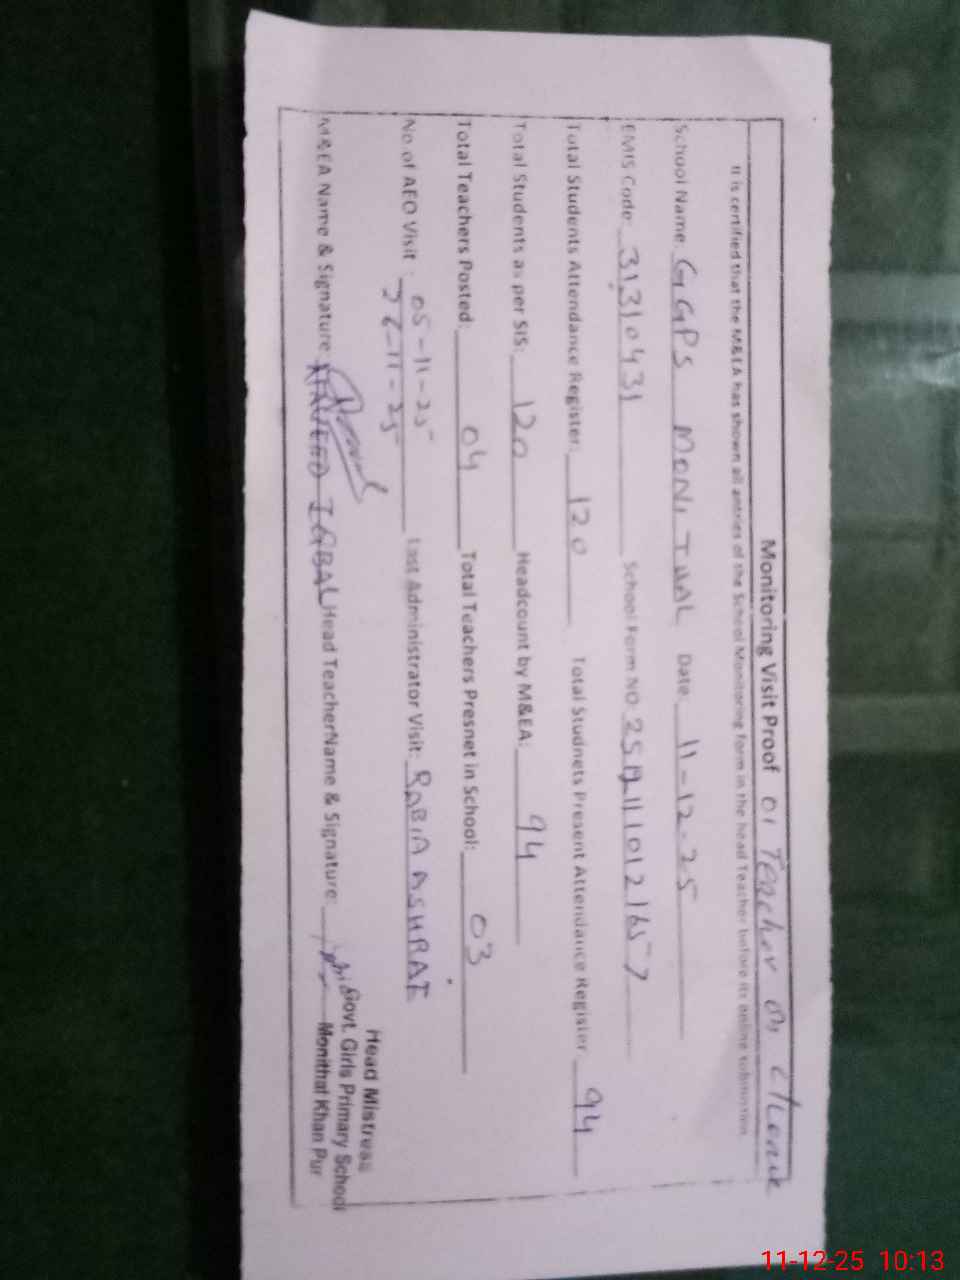 Monitoring Visit Proof 01 Teacher on
It is certified that the M&EA has shown all entries of the School Monitoring form in the head Teacher before its online submission
School Name: GGPS MONI THAL Date: 11-12-25
EMIS Code: 31310431 School Form NO:
Total Students Attendance Register: 120 Total Studnets Present Attendance Register 94
Total Students as per SIS: 120 Headcount by M&EA: 94
Total Teachers Posted: 04 Total Teachers Presnet in School: 03
No of AEO Visit : 05-11-25 Last Administrator Visit: RABIA ASHRAF
26-11-25
M&EA Name & Signature: IQBAL Head TeacherName & Signature:
Head Mistress
Govt. Girls Primary School
Monithal Khan Pur
11-12-25 10:13